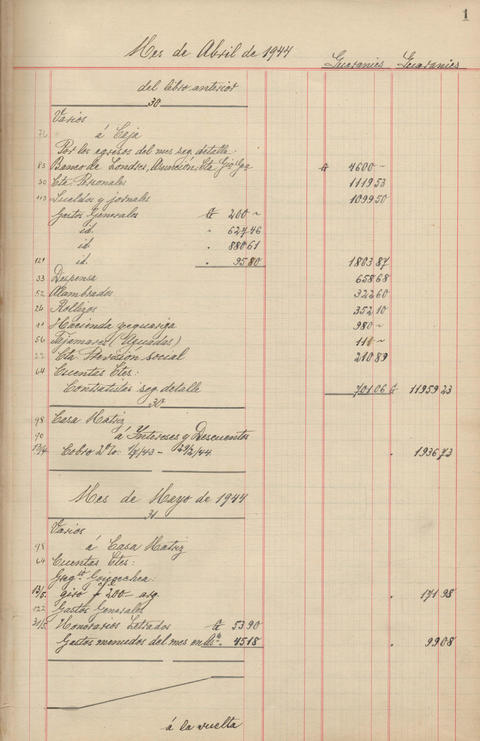 1
Mes de Abril de 1944 Guaranies Guaranies
del libro anterior
30
Varios
76 á Caja
Por los egresos del mes seg. detalle:
83 Banco de Londres, Asunción, Cta. ₲ 4600 ~
30 Cta. Personales 1119 53
113 Sueldos y jornales 1099 50
Gastos Generales ₲ 200 ~
id. " 627.46
id. " 880 61
121 id. " 95.80 1803 87
33 Despensa 658 68
52 Alambrados 322 60
26 Rollizos 352 10
41 Hacienda yeguariza 980 ~
56 Tajamares (Aguadas) 111 ~
22 Cta. Prevision social 210 89
64 Cuentas Ctes:
Contratistas seg. detalle 701 06 ₲ 11959 23
30
98 Casa Matriz
90 á Intereses y Descuentos
Cobro 2% s. 1/7/43 - 29/2/44 " 1936 73
Mes de Mayo de 1944
31
Varios
98 á Casa Matriz
64 Cuentas Ctes:
Greg. Goigochea:
13/5 giro 200- arg. " 171 98
122 Gastos Generales
31/5 Honorarios Letrados ₲ 53 90
Gastos menudos del mes en " 45 18 " 99 08
á la vuelta